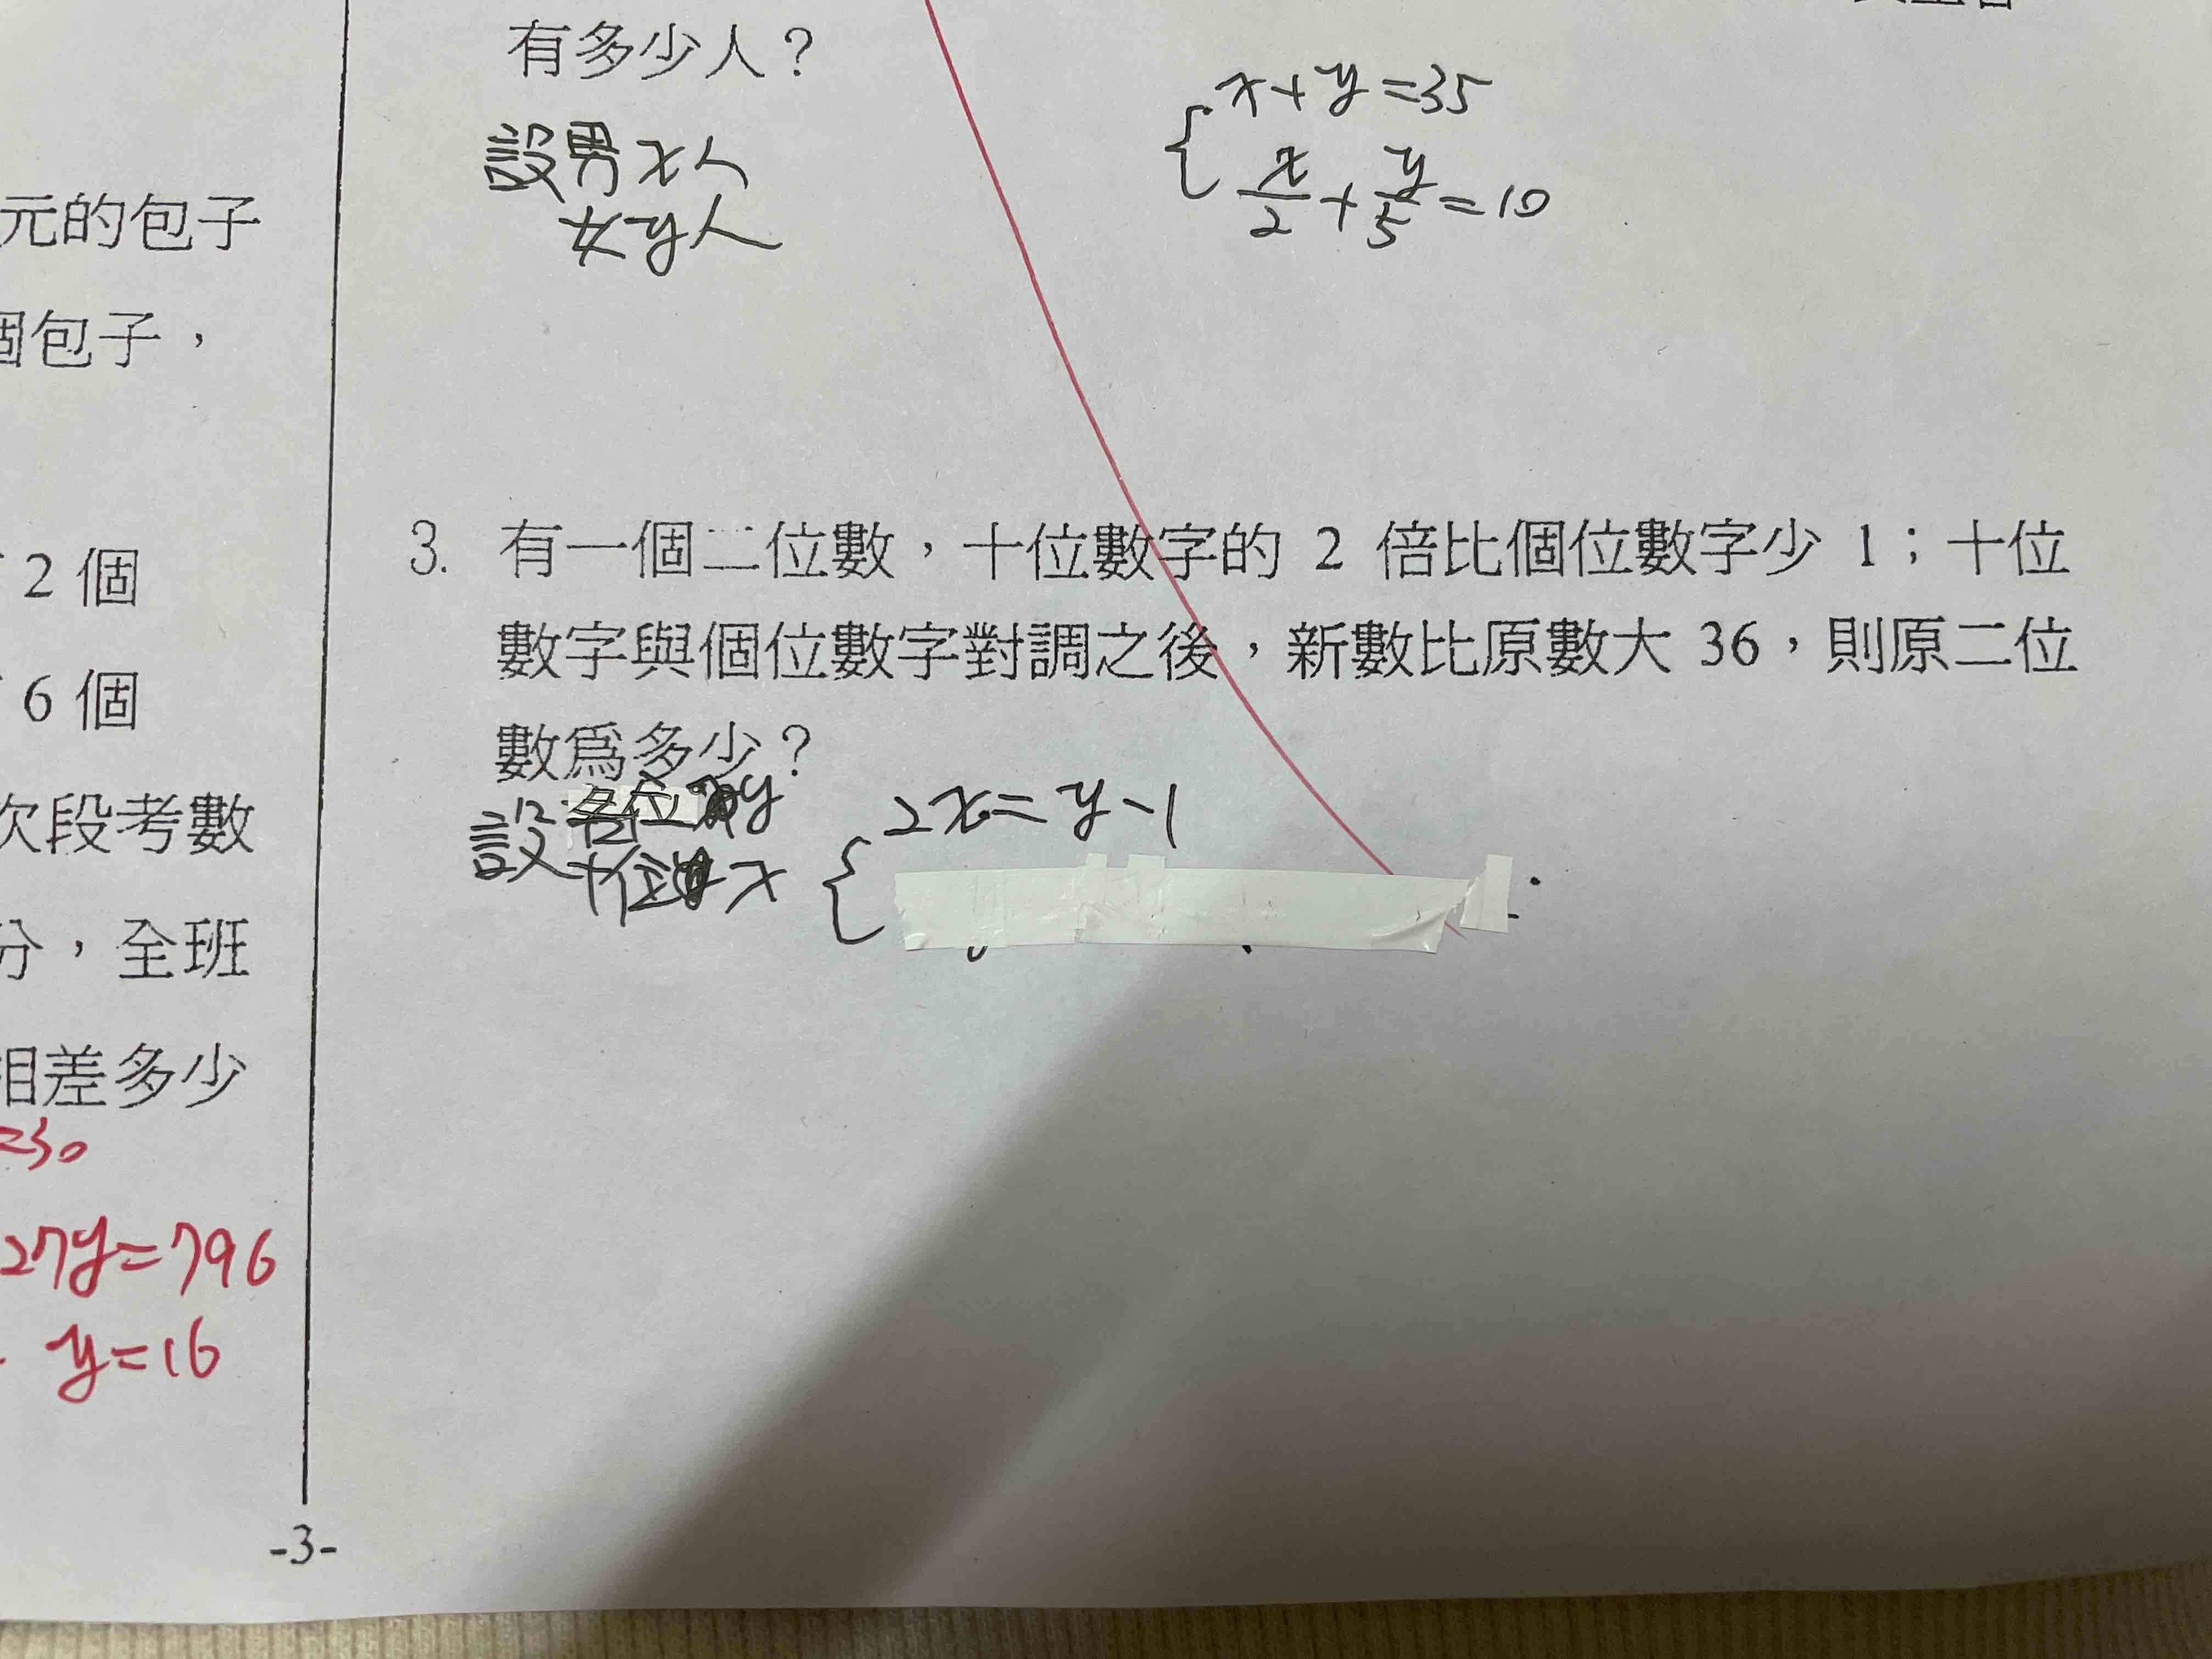 元的包子
個包子，
2 個
6 個
次段考數
分，全班
相差多少
=30
27y=796
y=16
有多少人？
設男x人
女y人
x+y=35
x/2+y/5=10
3. 有一個二位數，十位數字的 2 倍比個位數字少 1；十位
數字與個位數字對調之後，新數比原數大 36，則原二位
數為多少？
設 y
十位 x
2x=y-1
-3-